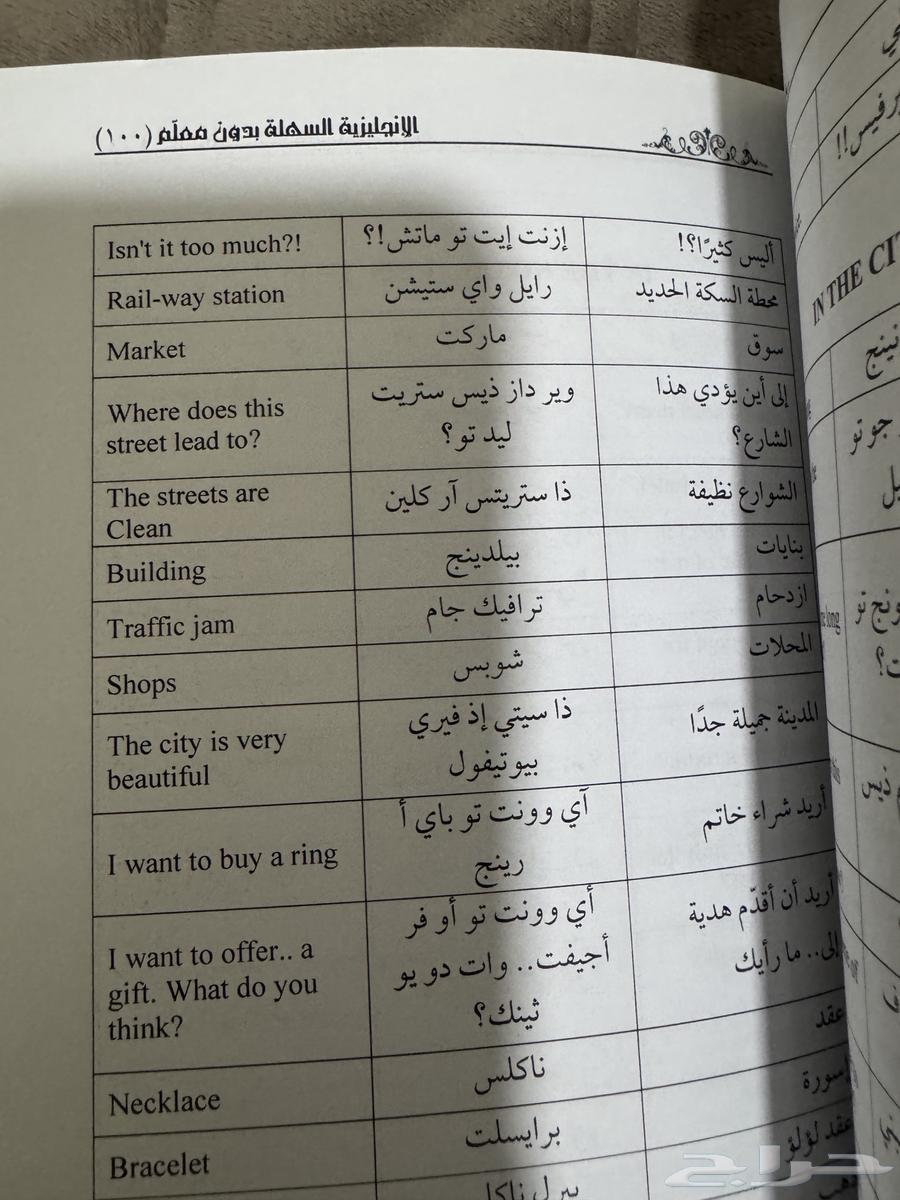 الإنجليزية السهلة بدون معلّم (١٠٠)
Isn't it too much?! إزنت إيت تو ماتش!؟ أليس كثيرًا؟!
Rail-way station رايل واي ستيشن محطة السكة الحديد
Market ماركت سوق
Where does this وير داز ذيس ستريت إلى أين يؤدي هذا
street lead to? ليد تو؟ الشارع؟
The streets are ذا ستريتس آر كلين الشوارع نظيفة
Clean
Building بيلدينج بنايات
Traffic jam ترافيك جام ازدحام
Shops شوبس المحلات
The city is very ذا سيتي إذ فيري المدينة جميلة جدًا
beautiful بيوتيفول
I want to buy a ring آي وونت تو باي أ أريد شراء خاتم
رينج
I want to offer.. a أي وونت تو أو فر أريد أن أقدّم هدية
gift. What do you أجيفت.. وات دو يو إلى.. ما رأيك
think? ثينك؟
Necklace ناكلس عقد
Bracelet برايسلت إسورة
عقد لؤلؤ
IN THE CI
جو تو
ونج تو
ذيس
حراج